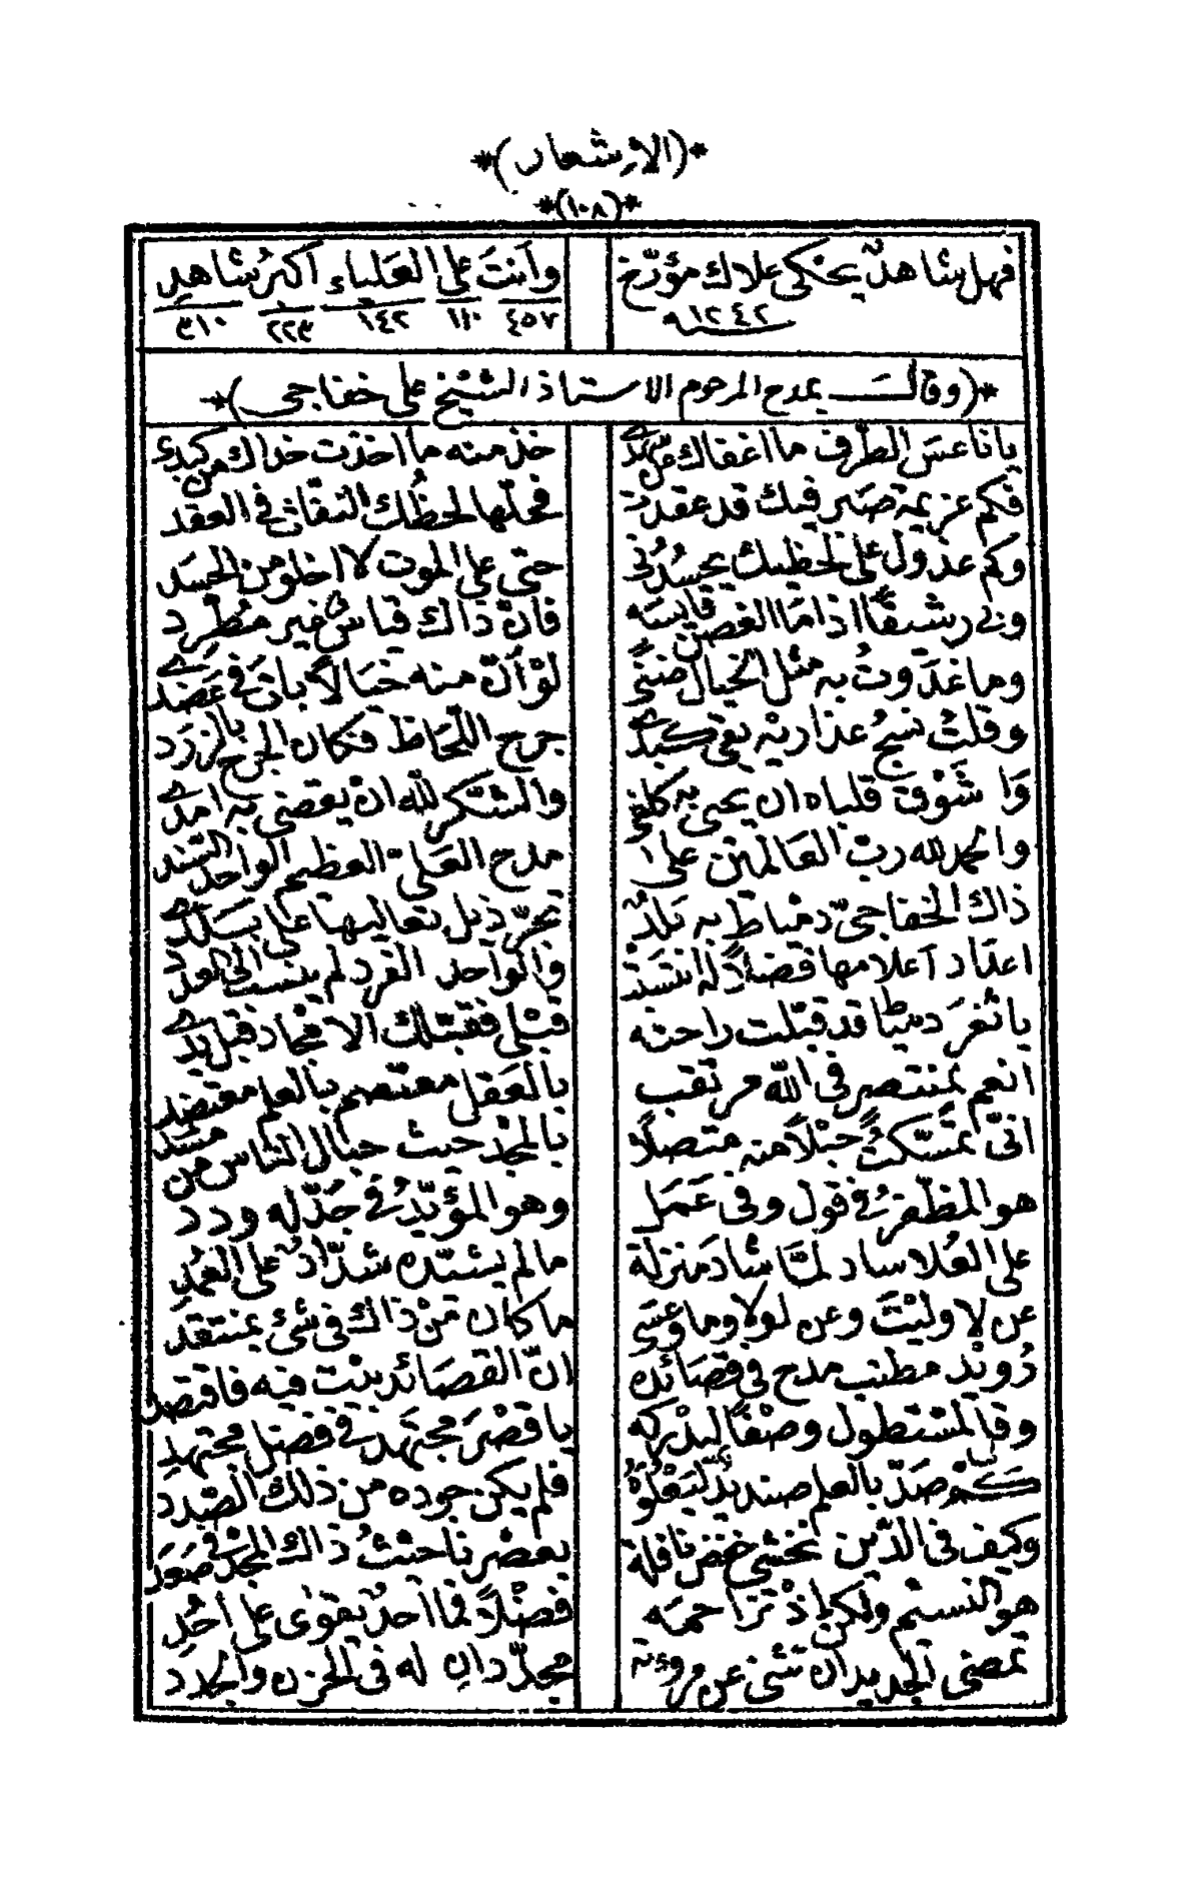 *(الاشعار)*
*(١٠٨)*
فهل شاهدٌ يحكى علاك مؤرّخ وأنتَ على العَلياء أكبرُ شاهدِ
١٢٤٢ ٤٥٧ ١١٠ ١٤٢ ٢٢٣ ٣١٠
*(وقالَـــ يمدح المرحوم الاستاذ الشيخ على خفاجى)*
يا ناعسَ الطّرف ما اغفاك عن سَهَدى خذ منه ما اخذت خداك من كبدى
فكم عزيمة صبر فيك قد عقدت فحلّها لحظُك النفّاث في العقد
وكم عذول على لحظيك يحسُدُنى حتى على الموت لا اخلو من الحسَد
وبى رشيقًا اذا ما الغصن قايسَه فانّ ذاك قياسٌ غير مطّرد
وما غدَوتُ به مثل الخيال ضنىً لوْ أنّ منه خيالاً باتَ في عَضدى
وقلتُ نسجُ عذاريْه يقى كبدى جرح اللّحَاظ فكان الجرح بالزرَد
وَا شَوْق قلباه ان يحيى به كلفى والشكر للّه ان يقضى به امدى
والحمد لله ربّ العَالمين على مدح العَلىّ العظيم الواحد السَّند
ذاك الخفاجىّ دمياط به بَلدٌ تجرّ ذيل تعاليها على بَلدى
اعتاد أعلامها فضلاً له انتسَبت والواحد الفرد لم ينسب الى العدد
يا ثغرَ دميَاط قد قبّلت راحته قبْلى فقبّلك الامجاد قبل يدى
انعم بمنتصر في اللّه مرتقب بالعَقل معتصم بالعلم معتضد
انّى تمسّكتُ حبْلاً منه متصلاً بالمجْد حيث حبال الناس من مسَد
هو المظفّرُ في قول وفى عَمَل وهو المؤيّدُ في جَدّ له ودد
على العُلا ساد لمّا شادَ منزلة ما لم يشيّده شدّادٌ على العُمُد
عن لا وليْتَ وعن لولا وما وعسَى ما كان مَنْ ذاك في شئ بمنتقد
رُويْد مطنب مدح في قصَائده انّ القصَائد بيْت فيه فاقتصد
وقل لمسْتطول وصْفًا ليدْركه يا قصْرَ مجتهد في فضل مجتهد
كم صَدّ بالعلم صنديدٌ ليَعْلوَهُ فلم يكن جوده من ذلك الصّدد
وكيف فى الدّين تخشى خفض نافلة بعصْرنا حيْثُ ذاك المجْد في صَعَد
هو النسيم ولكن اذْ تزاحمه فضْلاً فما أحدٌ يقوى على أحُد
تمضى الجديدان تثنى عن مروءته مجدّدان له فى الحزن والجدد